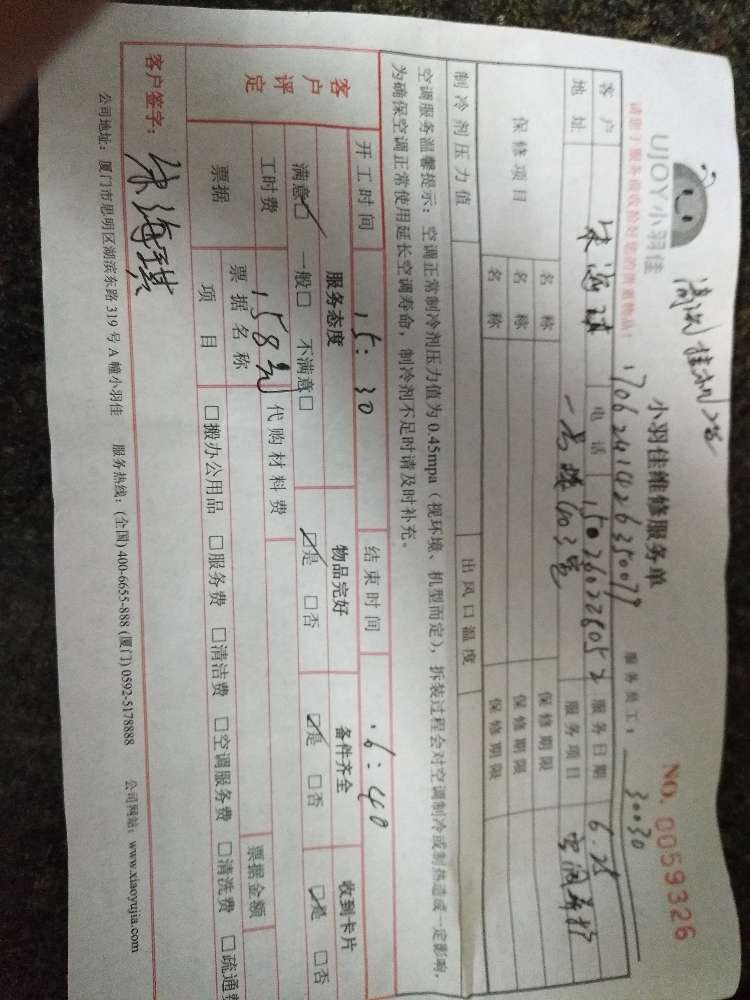 UJOY小羽佳
小羽佳维修服务单
NO. 0059326
请您于服务前收拾好您的贵重物品!
1706241426350079
服务员工: 30030
客户 朱海琪 电话 150260228052 服务日期 6.25
地址 403室 服务项目 空调
保修项目 名称 保修期限
名称 保修期限
名称 保修期限
制冷剂压力值 出风口温度
空调服务温馨提示:空调正常制冷剂压力值为0.45mpa(视环境、机型而定),拆装过程会对空调制冷或制热造成一定影响,
为确保空调正常使用延长空调寿命,制冷剂不足时请及时补充。
开工时间 15:30 结束时间 16:40
客户评定
服务态度 物品完好 备件齐全 收到卡片
满意☑ 一般□ 不满意□ ☑是 □否 ☑是 □否 ☑是 □否
工时费 158元 代购材料费
票据 票据名称 票据金额
项目 □搬办公用品 □服务费 □清洁费 □空调服务费 □清洗费 □疏通费
客户签字: 朱海琪
公司地址:厦门市思明区湖滨东路319号A幢小羽佳 服务热线:(全国)400-6655-888 (厦门)0592-5178888 公司网站:www.xiaoyujia.com